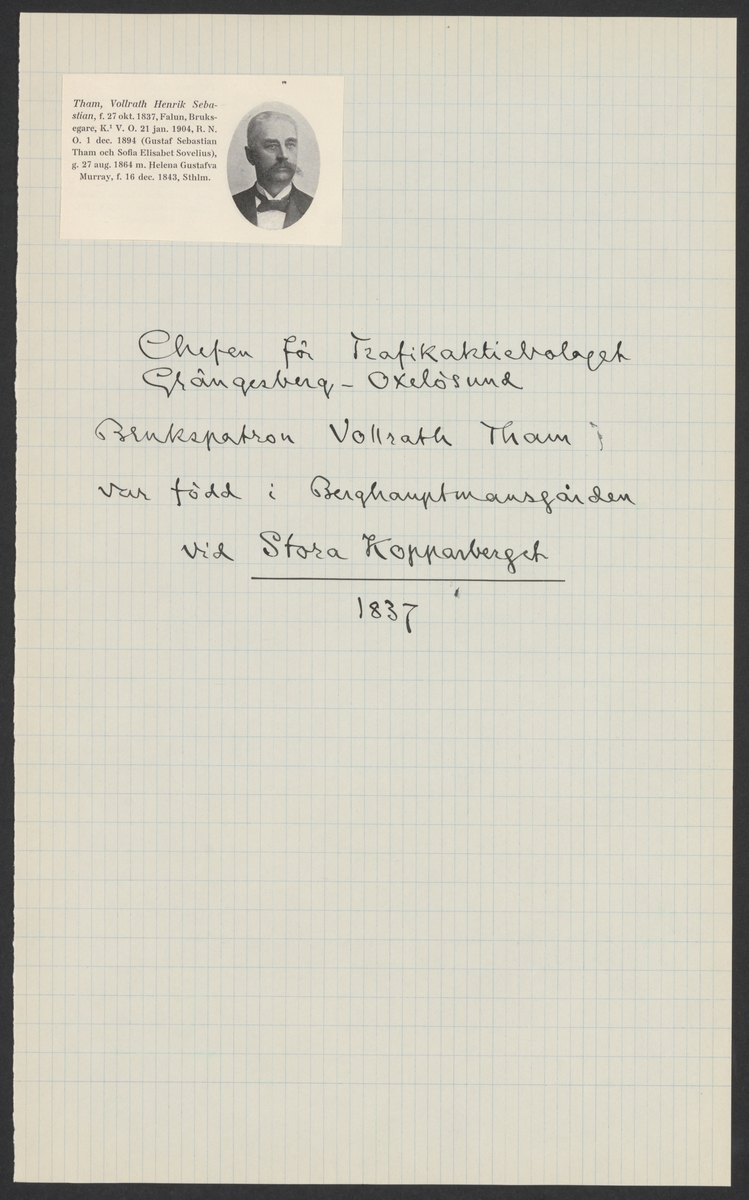 Tham, Vollrath Henrik Seba-
stian, f. 27 okt. 1837, Falun, Bruks-
egare, K.¹ V. O. 21 jan. 1904, R. N.
O. 1 dec. 1894 (Gustaf Sebastian
Tham och Sofia Elisabet Sovelius),
g. 27 aug. 1864 m. Helena Gustafva
Murray, f. 16 dec. 1843, Sthlm.
Chefen för Trafikaktiebolaget
Grängesberg - Oxelösund
Brukspatron Vollrath Tham
var född i Berghauptmansgården
vid Stora Kopparberget
1837